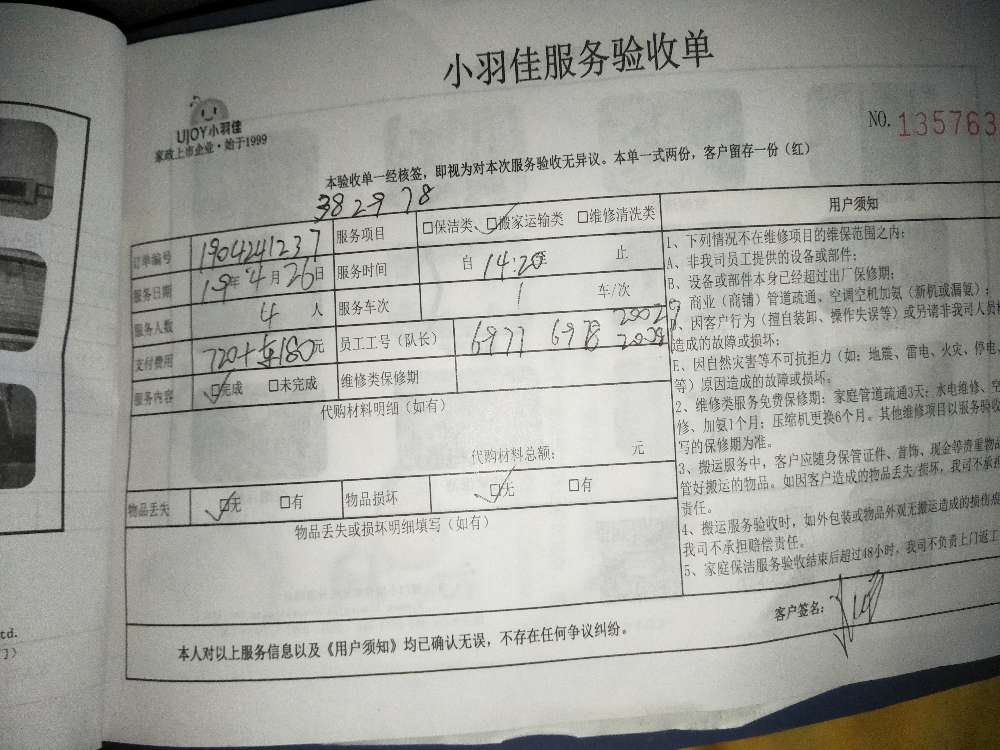 小羽佳服务验收单
UJOY小羽佳
家政上市企业·始于1999
NO. 135763
本验收单一经核签，即视为对本次服务验收无异议。本单一式两份，客户留存一份（红）
38 29 78
订单编号 1904241237 服务项目 □保洁类、□搬家运输类 □维修清洗类
服务日期 19年4月26日 服务时间 自 14:20 止
服务人数 4 人 服务车次 1 车/次
支付费用 720+车180元 员工工号（队长） 6977 6978
服务内容 □完成 □未完成 维修类保修期
代购材料明细（如有）
代购材料总额： 元
物品丢失 □无 □有 物品损坏 □无 □有
物品丢失或损坏明细填写（如有）
用户须知
1、下列情况不在维修项目的维保范围之内：
A、非我司员工提供的设备或部件；
B、设备或部件本身已经超过出厂保修期；
商业（商铺）管道疏通，空调空机加氨（新机或漏氨）；
、因客户行为（擅自装卸、操作失误等）或另请非我司人员
造成的故障或损坏；
E、因自然灾害等不可抗拒力（如：地震、雷电、火灾、停电、
等）原因造成的故障或损坏。
2、维修类服务免费保修期：家庭管道疏通3天；水电维修、空
修、加氨1个月；压缩机更换6个月。其他维修项目以服务验收
写的保修期为准。
3、搬运服务中，客户应随身保管证件、首饰、现金等贵重物品
管好搬运的物品。如因客户造成的物品丢失/损坏，我司不承担
责任。
4、搬运服务验收时，如外包装或物品外观无搬运造成的损伤痕
我司不承担赔偿责任。
5、家庭保洁服务验收结束后超过48小时，我司不负责上门返工
客户签名：
本人对以上服务信息以及《用户须知》均已确认无误，不存在任何争议纠纷。
td.